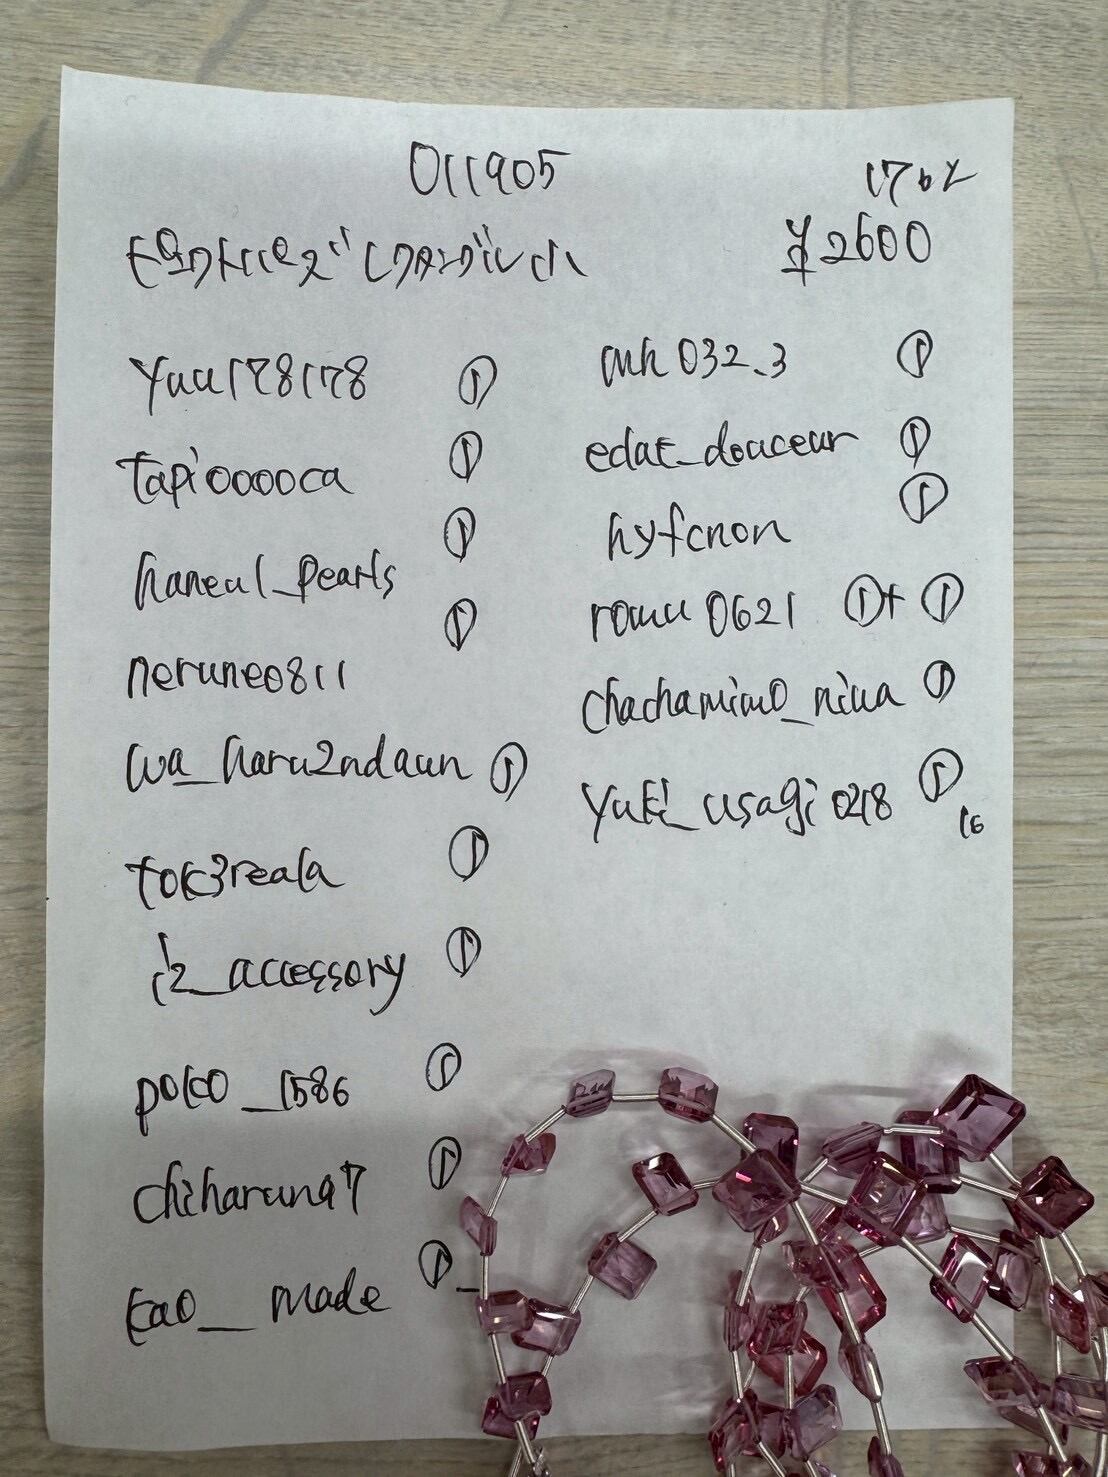 011905
17コ
モルガナイトローズ レクタングル 小
¥2600
yuu178178 ①
tapiooooca ①
haneul_pearls ①
nerune0811 ①
wa_haru2ndaun ①
tok3reala ①
i2_accessory ①
poko_1586 ①
chiharuna7 ①
kao_made ①
mh032_3 ①
edat_douceur ①
hyfcnon ①
romu0621 ①+①
chachamimo_niua ①
yuki_usagi0218 ①
16